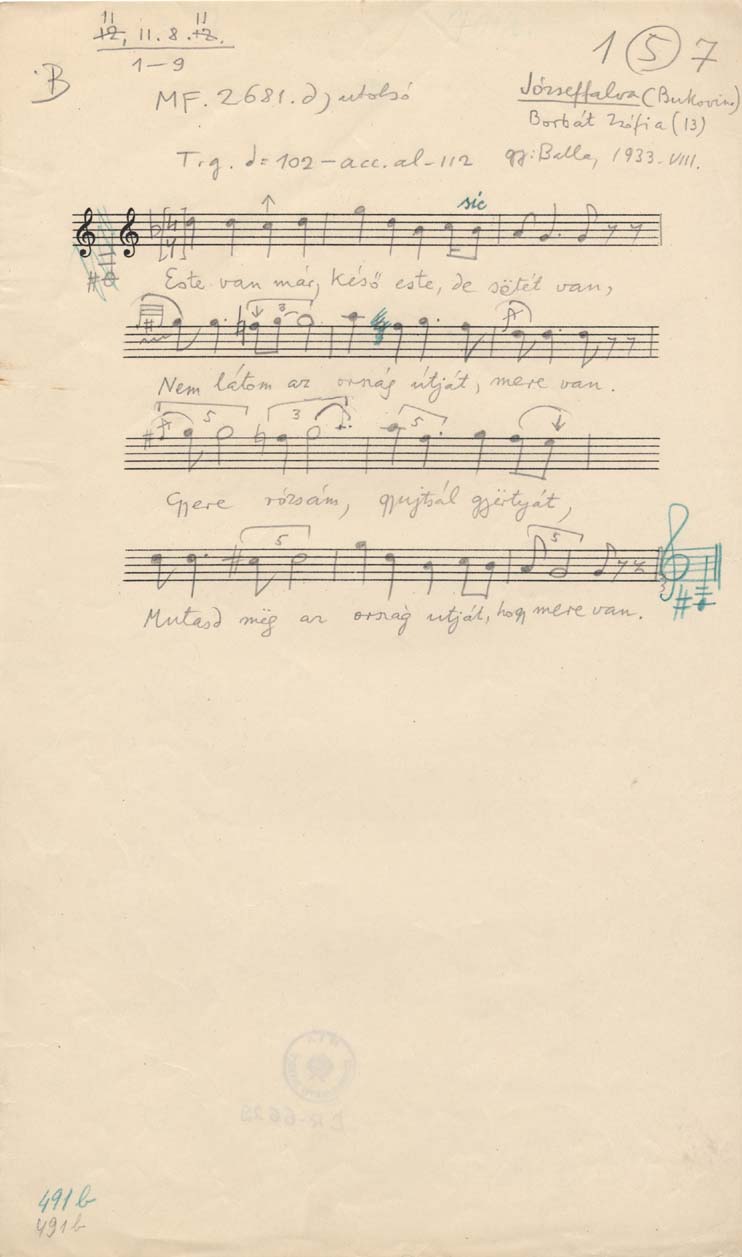 11 11
12, 11. 8. 12.
1-9
B
1 5 7
MF. 2681. d) utolsó
Józseffalva (Bukovina)
Borbát Zsófia (13)
T. g. = 102 - acc. al - 112
gy: Balla, 1933. VIII.
sic
4
4
Este van már, késő este, de sötét van,
3
Nem látom az ország útját, mere van.
5 3 5
Gyere rózsám, gyujtsál gyërtyát,
5 5
Mutasd mëg az ország utját, hogy mere van.
491b
491b